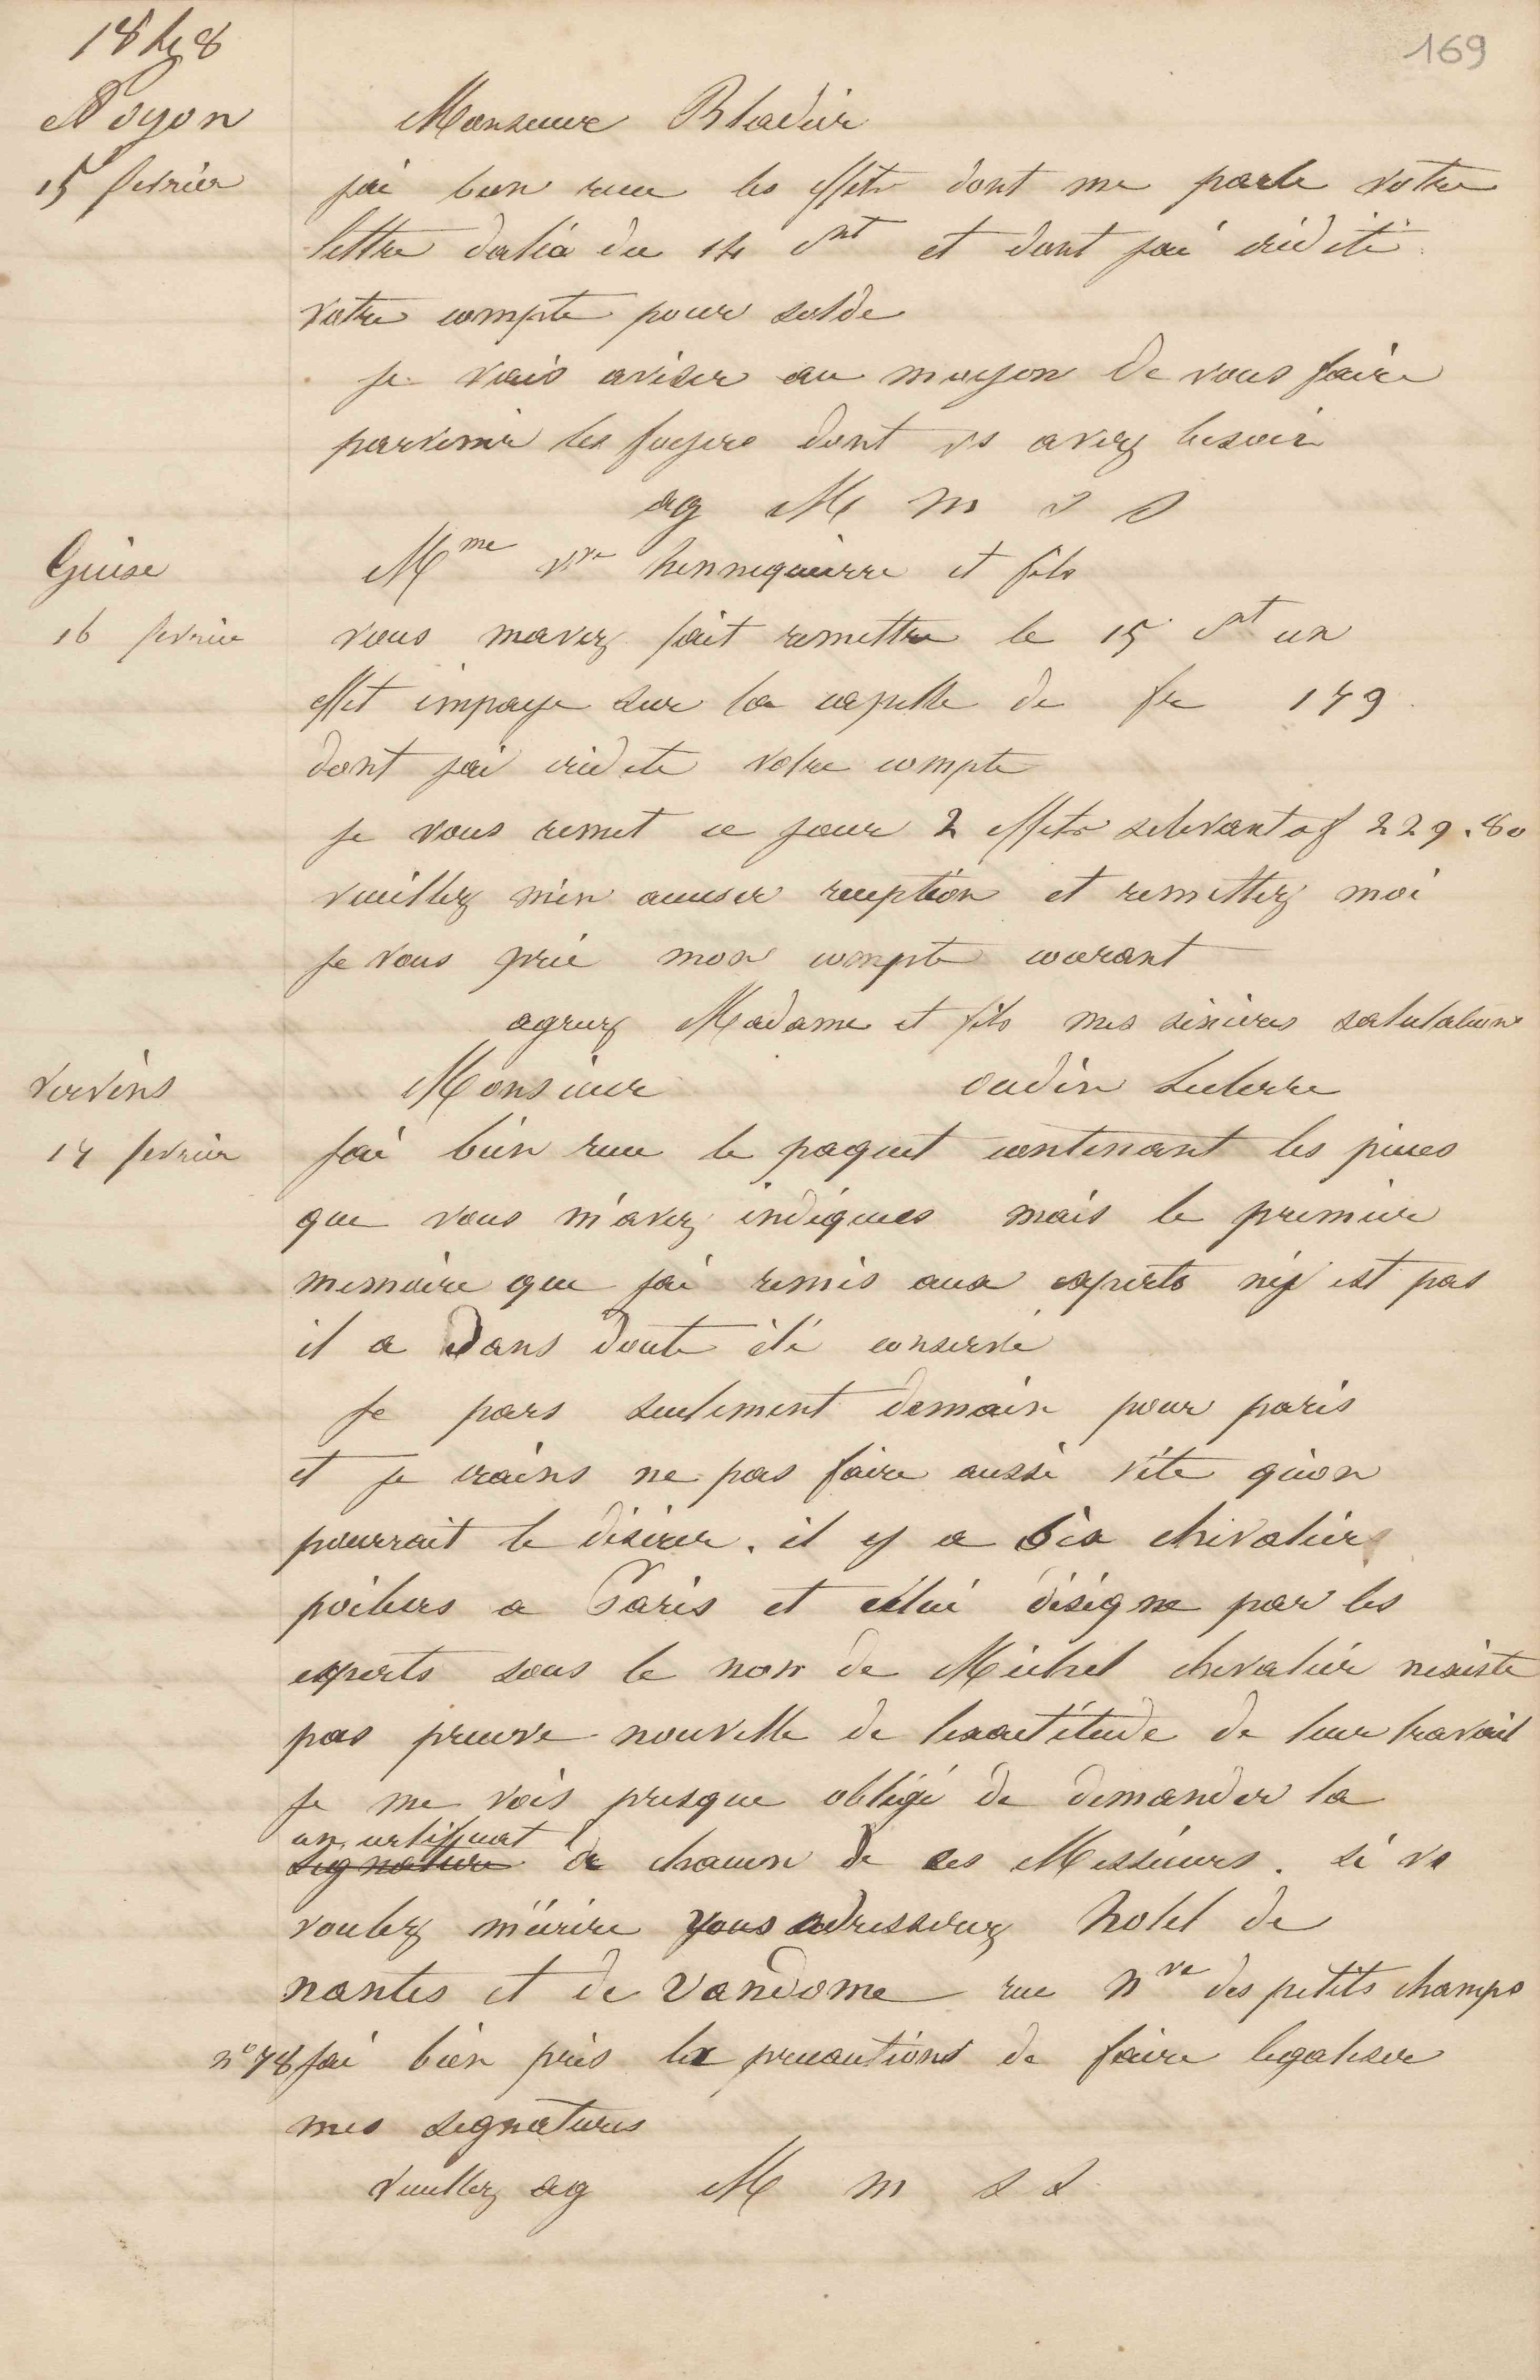 169
1848
Noyon
15 fevrier
Monsieur Bladier
jai bien recu les effets dont me parle votre
lettre datéa du 14 ct et dont jai crédité
votre compte pour solde
je vais aviser au moyen de vous faire
parvenir les foyers dont vs avez besoin
ag M m s s
Guise
16 fevrier
Mme vve hennequierre et fils
vous mavez fait remettre le 15 ct un
effet impaye sur la capelle de fr 149
dont jai crédité votre compte
je vous remet ce jour 2 effets selevant af 229.80
veuillez m'en accuser reception et remettez moi
je vous prie mon compte courant
agreez Madame et fils mes sinceres salutations
Vervins
17 fevrier
Monsieur oudin Leclerre
jai bien recu le paquet contenant les pieces
que vous m'avez indiquees mais le premier
memoire que jai remis aux experts n'y est pas
il a sans doute été conservé
Je pars seulement demain pour paris
et je crains ne pas faire aussi vite qu'on
pourrait le désirer. il y a six chevaliers
poiliers a Paris et celui désigné par les
experts sous le nom de Michel chevalier nexiste
pas preuve nouvelle de lexactitude de leur travail
je me vois presque obligé de demander la
un certificat
signature de chacun de ces Messieurs. si vs
voulez m'écrire vous adresserez hotel de
nantes et de Vandome rue nve des petits champs
n° 78 jai bien pris les precautions de faire legaliser
mes signatures
Veuillez ag M m s s